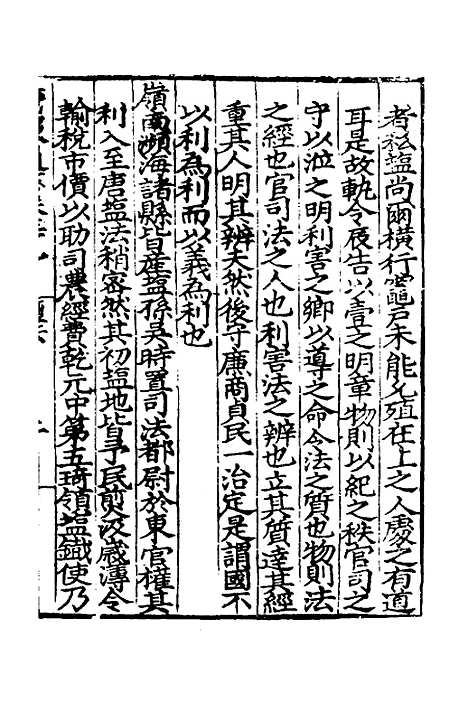 者私塩尚爾橫行竈戶未能兊殖在上之人處之有道
耳是故執令展告以壹之明章物則以紀之秩官司之
守以涖之明利害之鄉以導之命令法之質也物則法
之經也官司法之人也利害法之辨也立其質達其經
重其人明其辨夫然後守廉商貞民一治定是謂國不
以利為利而以義為利也
嶺南瀕海諸縣皆産塩孫吳時置司法都尉於東官權其
利入至唐塩法稍宻然其初塩地皆予民煎汲咸薄令
輸稅市價以助司農經費乾元中第五琦領塩鐵使乃